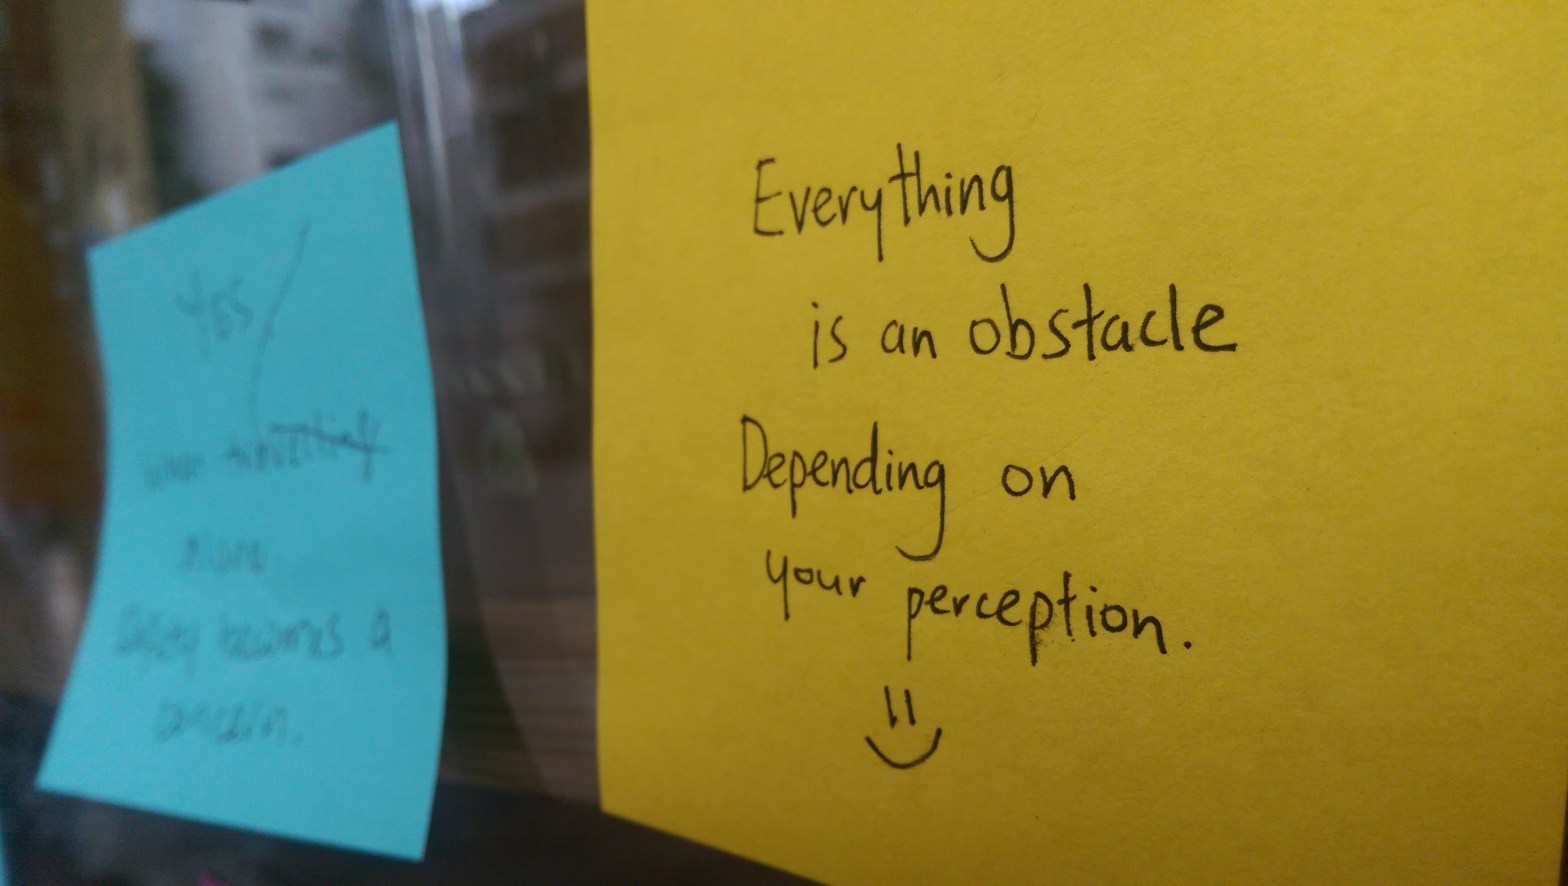 YES
more
safety becomes a
concern.
Everything
is an obstacle
Depending on
your perception.